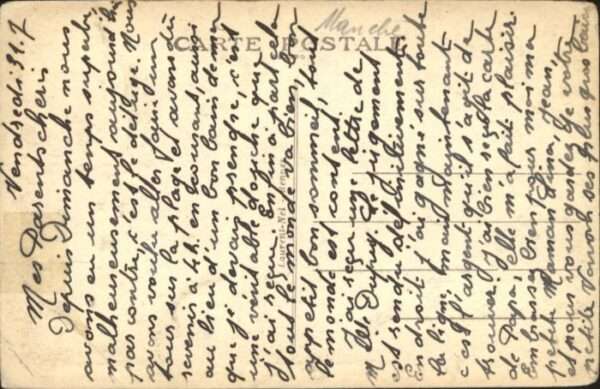 Manche
CARTE POSTALE
Vendredi 31.7
Mes Parents chéris
Depuis Dimanche nous
avons eu un temps superbe,
malheureusement aujourd'hui
par contre, c'est le déluge. Nous
avons voulu aller faire un
tour sur la plage et avons dû
revenir à 4h. en courant, aussi
au lieu d'un bon bain de mer
que je devais prendre, c'est
une véritable douche que
j'ai reçue. Enfin à part cela
tout le monde va bien, bon
appétit bon sommeil, tout
le monde est content.
J'ai reçu une lettre de
M. Dupuy. Le jugement
est rendu définitivement
en droit j'ai gagné sur toute
la ligne, maintenant
c'est l'argent qu'il s'agit de
trouver. J'ai bien reçu la carte
de Papa, elle m'a fait plaisir.
Embrassez bien pour moi ma
petite Maman, Jean,
et nous vous gardez de votre
petite
plus gros baisers
Laurent-Nel, Rennes